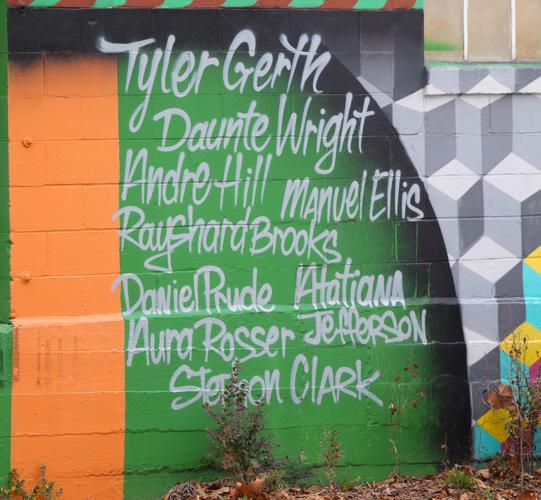 Tyler Gerth
Daunte Wright
Andre Hill
Manuel Ellis
Rayshard Brooks
Daniel Prude
Atatiana
Jefferson
Aura Rosser
Stephon Clark